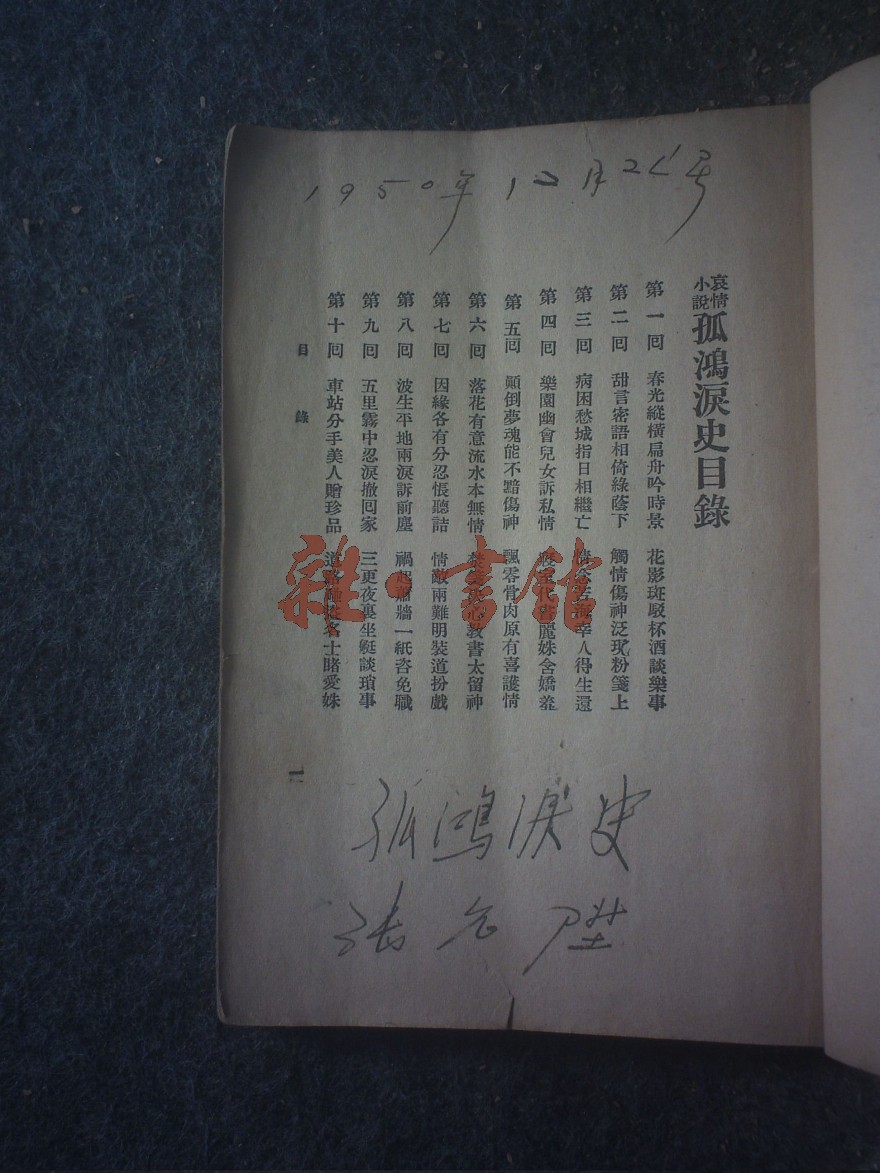 1950年12月26号
哀情小說 孤鴻淚史目錄
第一囘 春光縱橫扁舟吟時景 花影斑駁杯酒談樂事
第二囘 甜言密語相倚綠蔭下 觸情傷神泛現粉箋上
第三囘 病困愁城指日相繼亡 情念苦海幸人得生還
第四囘 樂園幽會兒女訴私情 麗姝含嬌羞
第五囘 顚倒夢魂能不黯傷神 飄零骨肉原有喜護情
第六囘 落花有意流水本無情 教書太留神
第七囘 因緣各有分忍悵聽詰 情敵兩難明裝道扮戲
第八囘 波生平地兩淚訴前塵 禍起蕭牆一紙咨免職
第九囘 五里霧中忍淚撤囘家 三更夜裏坐艇談瑣事
第十囘 車站分手美人贈珍品 道路 名士睹愛姝
目錄
一
雜·書館
孤鴻淚史
張